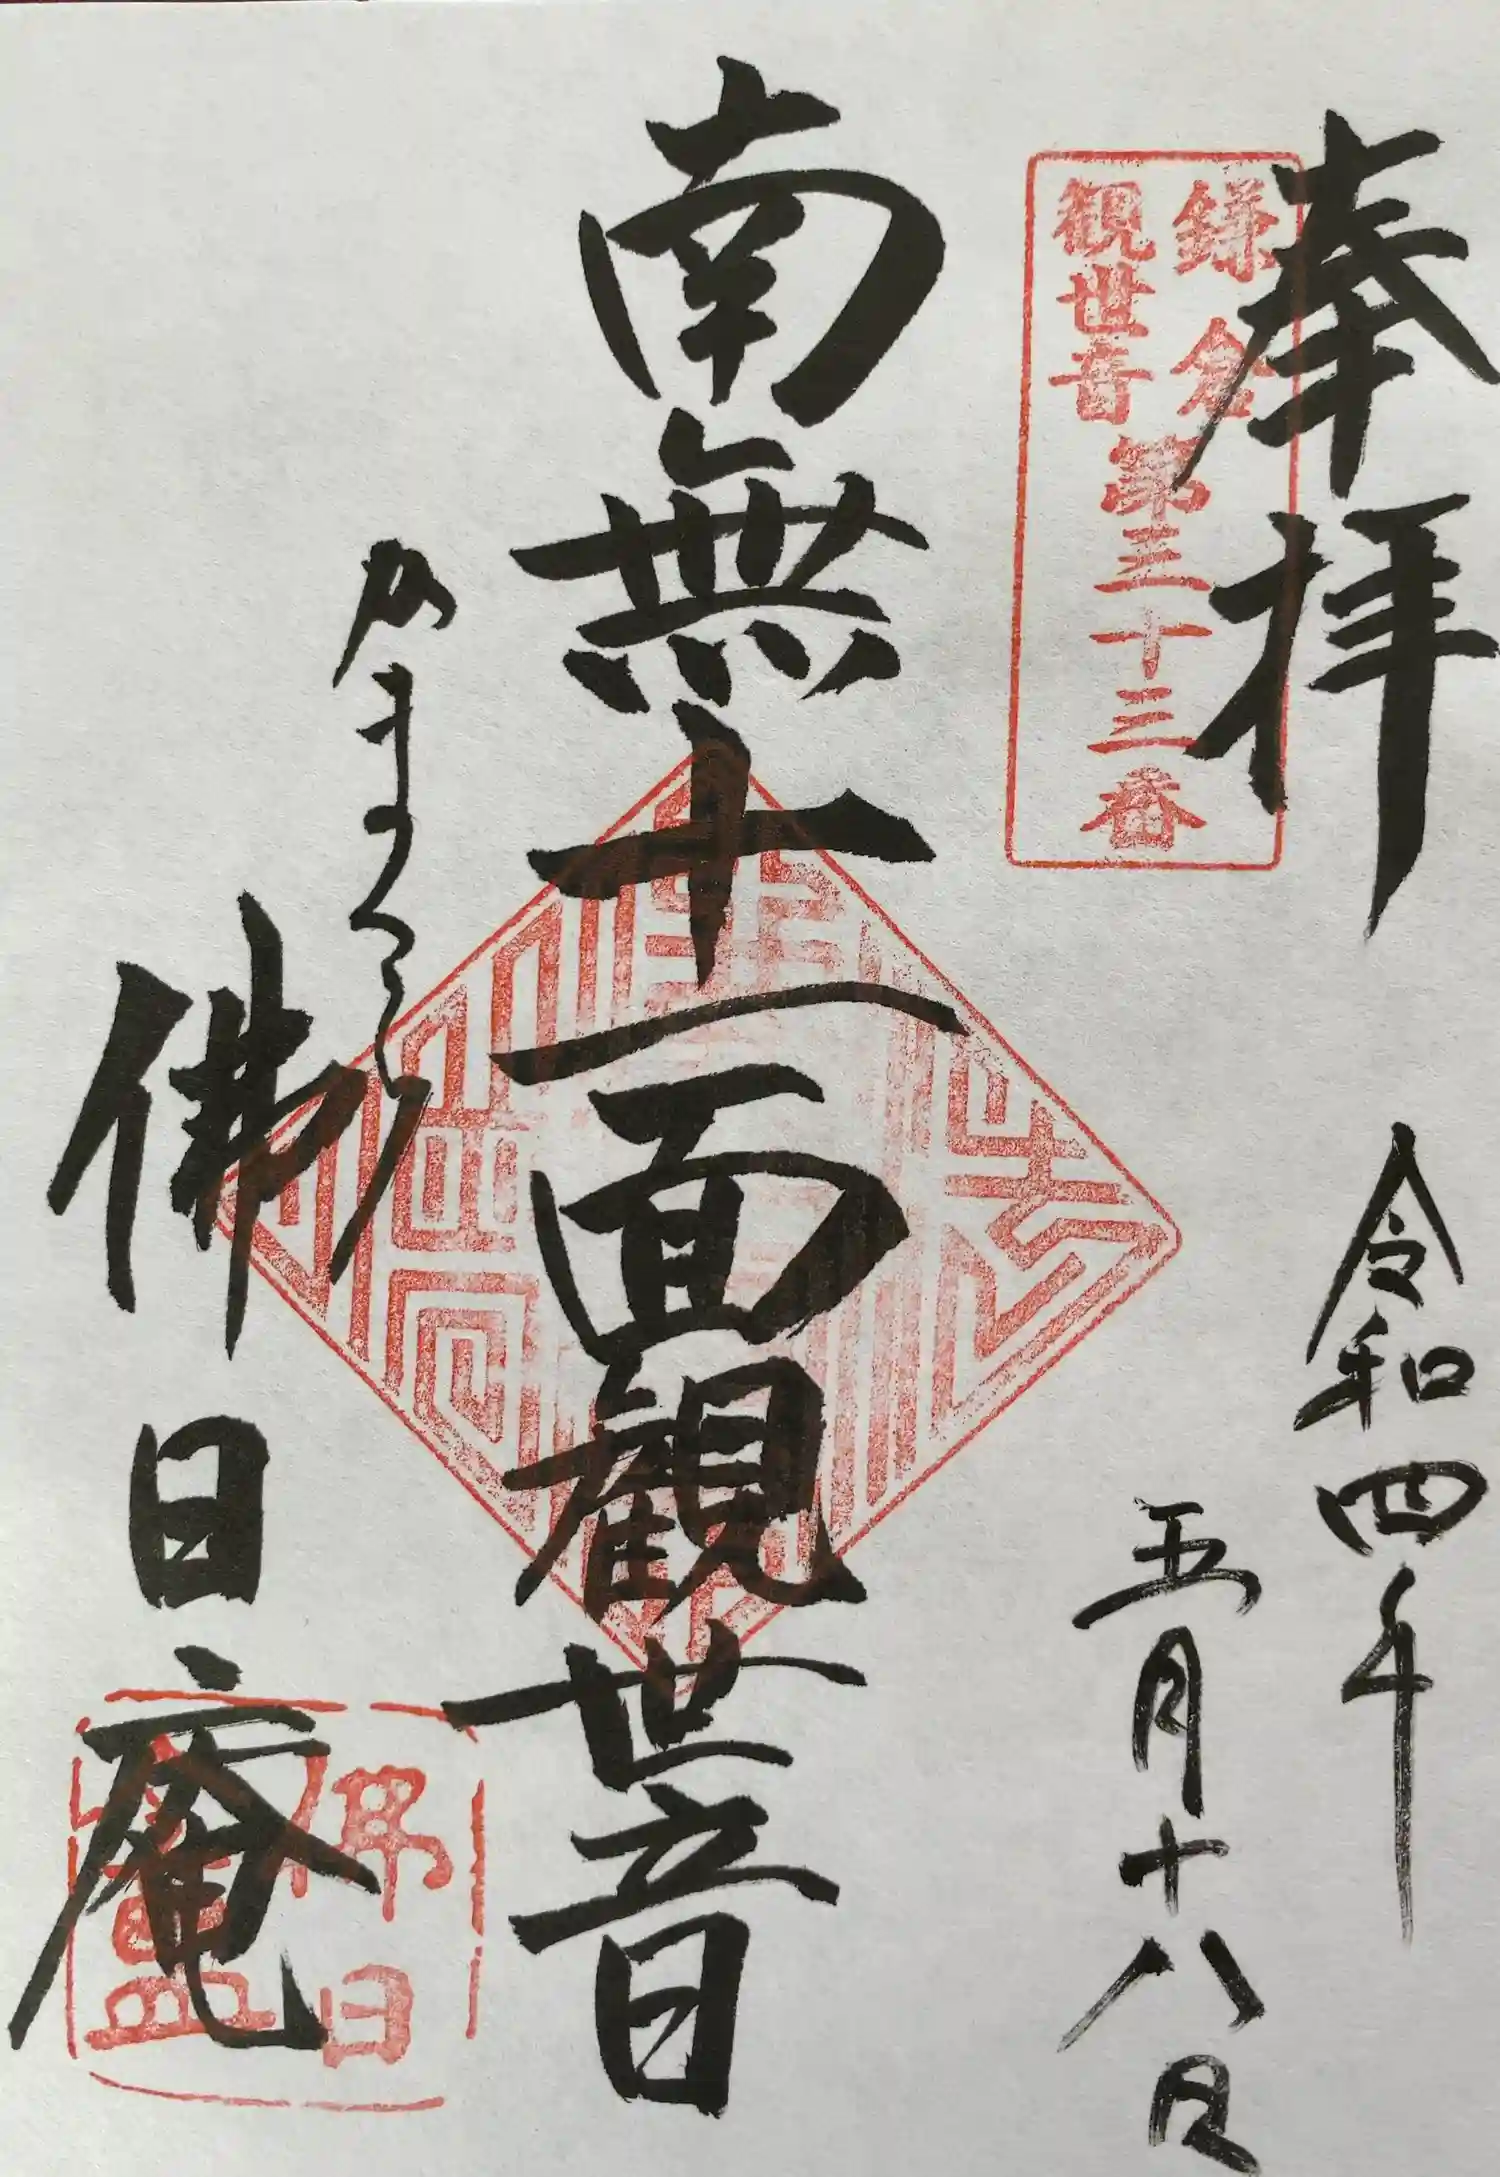 奉拝
令和四年
五月十八日
鎌倉
観世音
第三十三番
南無十一面観世音
かまくら
佛日庵
佛日